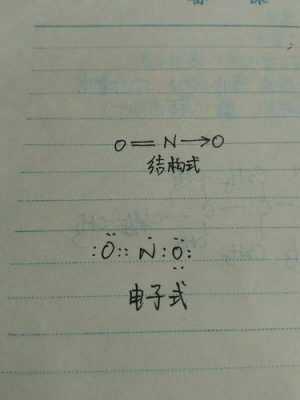 O=N→O
结构式
:Ö::Ṅ:Ö̤:
电子式